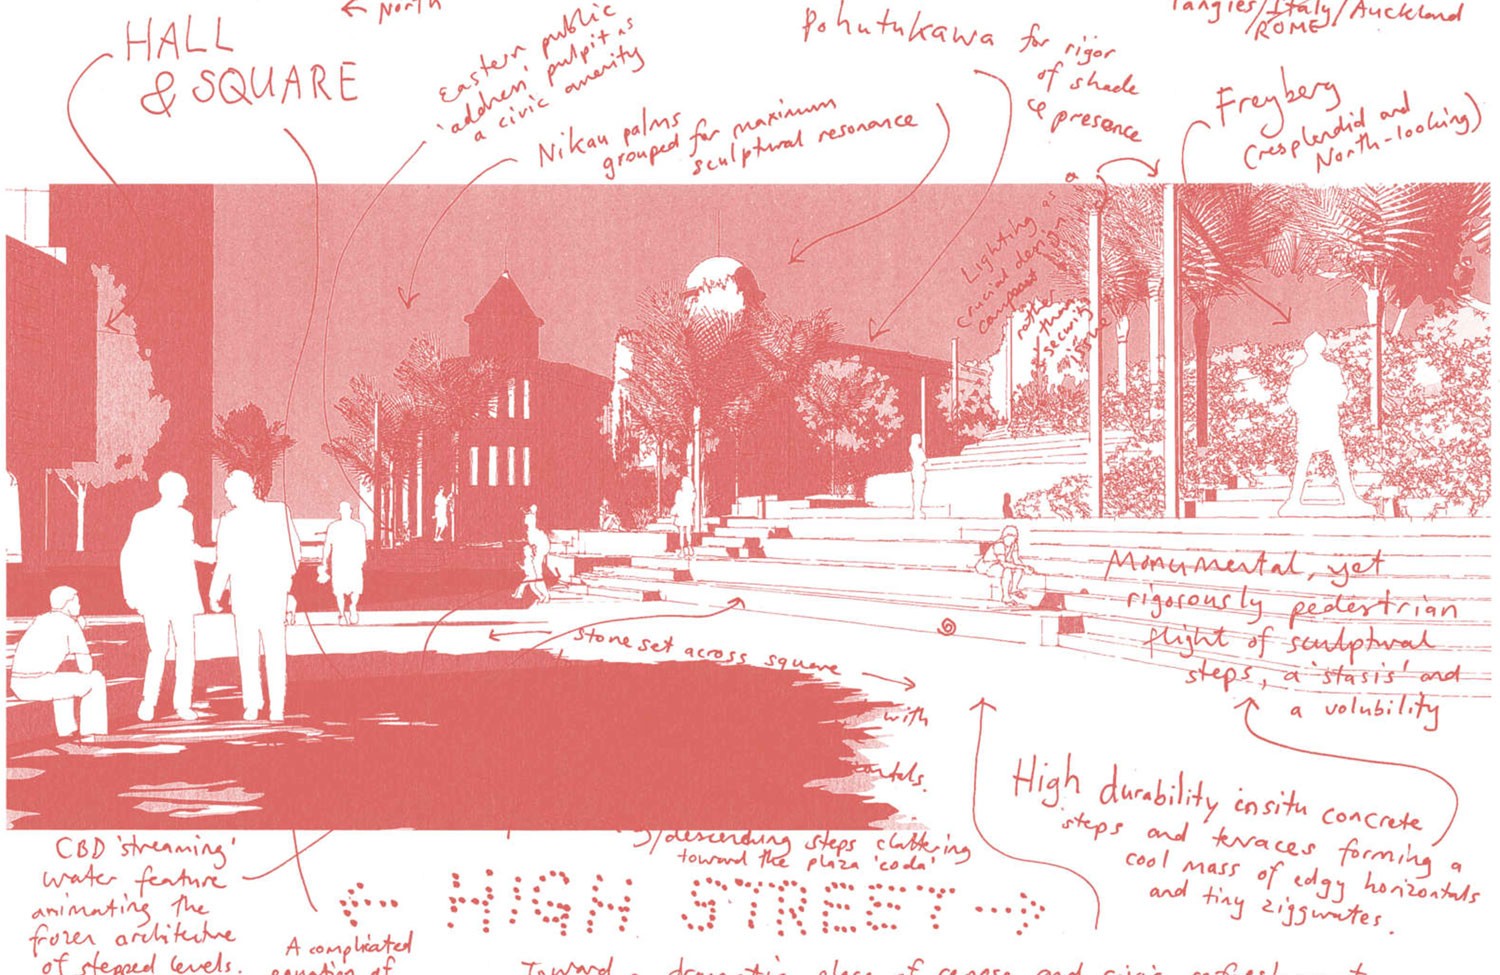 ← North
Tangies/Italy/Auckland
ROME
HALL
& SQUARE
Eastern public
'address' pulpit as
a civic amenity
Nikau palms
grouped for maximum
sculptural resonance
Pohutukawa for rigor
of shade
& presence
Freyberg
(resplendid and
North-looking)
Lighting as a
crucial design
component
rather
than
security
issue
stone set across square
with
Monumental, yet
rigorously pedestrian
flight of sculptural
steps, a 'stasis' and
a volubility
High durability insitu concrete
steps and terraces forming a
cool mass of edgy horizontals
and tiny ziggurates.
/descending steps clattering
toward the plaza 'coda'
CBD 'streaming'
water feature
animating the
frozen architecture
of stepped levels.
← HIGH STREET →
A complicated
equation of
Toward a dramatic place of